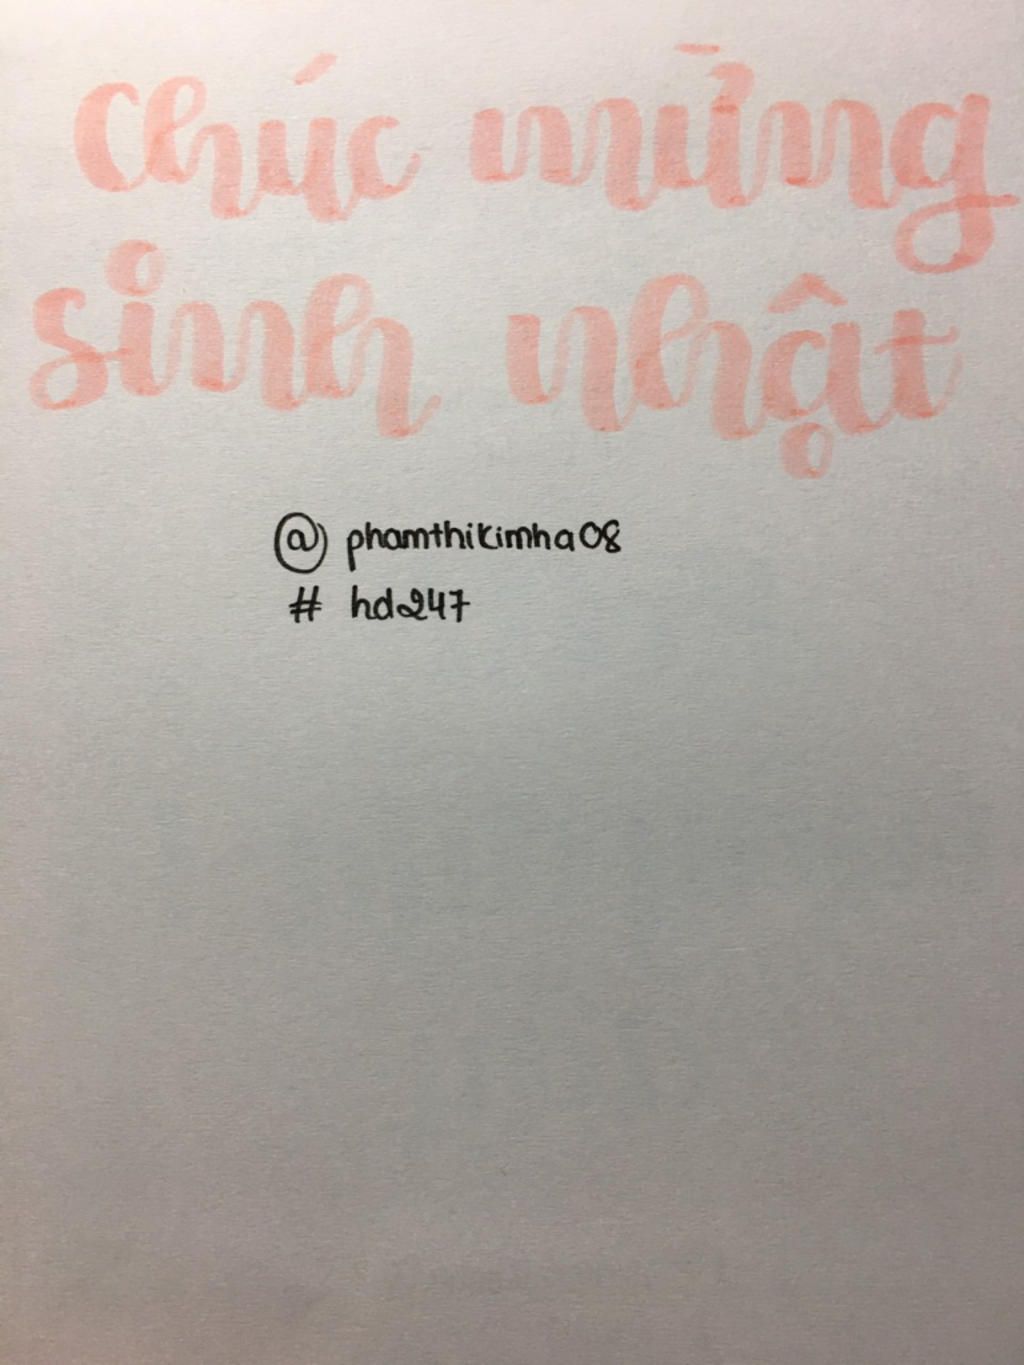 Chúc mừng
sinh nhật
@ phamthikimha08
# hd247